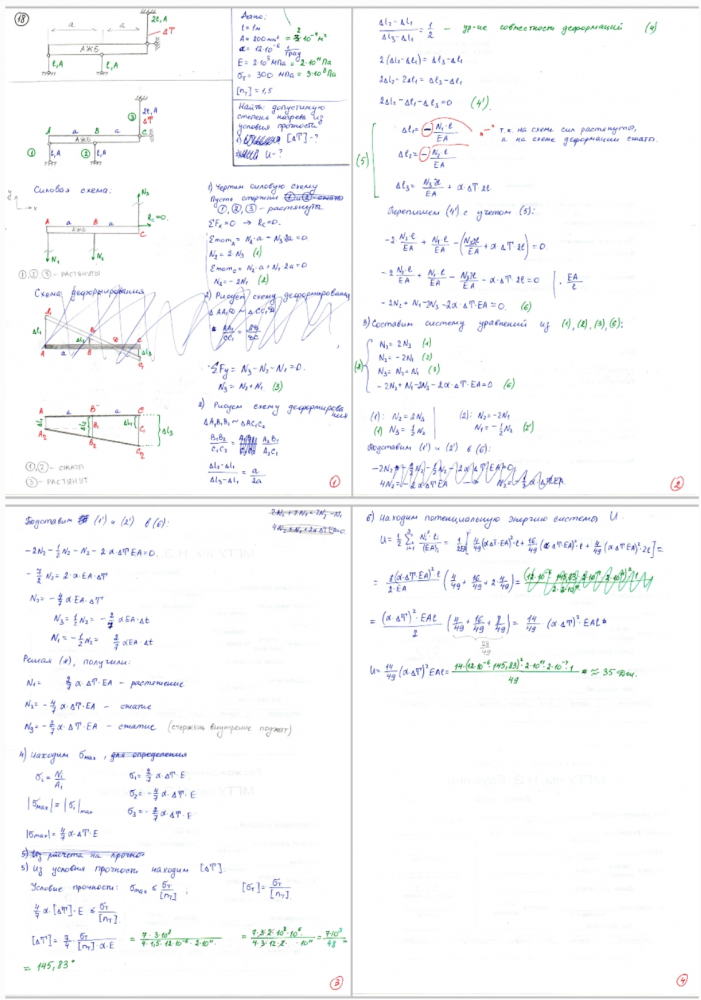 18
a
a
2l, A
ΔT
АЖБ
l, A
l, A
Дано:
l = 1м
A = 200мм² = 2·10⁻⁴м²
α = 12·10⁻⁶ 1/град
E = 2·10⁵ МПа = 2·10¹¹ Па
σт = 300 МПа = 3·10⁸Па
[nт] = 1,5
Найти: допустимую
степень нагрева из
условия прочности
[ΔT] - ?
U - ?
3
2l, A
ΔT
A
a
B
a
C
1
l, A
2
l, A
Силовая схема:
y
x
N₃
A
a
B
a
АЖБ
C
Rc=0.
N₁
N₂
1, 2, 3 - РАСТЯНУТЫ
1) Чертим силовую схему
Пусть стержни
1, 2, 3 - растянуты
ΣFx = 0 → Rc = 0.
Σmom A = N₂·a - N₃2a = 0
N₂ = 2·N₃ (1)
Σmom C = N₂·a + N₁2a = 0
N₂ = -2N₁ (2)
Схема деформирования
2) Рисуем схему деформирования
ΣFy = N₃ - N₂ - N₁ = 0.
N₃ = N₂ + N₁ (3)
2) Рисуем схему деформирования
ΔA₂B₁B₂ ~ ΔA₂C₁C₂
Δl₂ - Δl₁ / Δl₃ - Δl₁ = a / 2a
A
a
B
a
C
Δl₁
Δl₂
Δl₁
Δl₃
A₂
B₁
B₂
C₁
C₂
1, 2 - СЖАТЫ
3 - РАСТЯНУТ
1
Δl₂ - Δl₁ / Δl₃ - Δl₁ = 1/2 - ур-ие совместность деформаций (4)
2(Δl₂ - Δl₁) = Δl₃ - Δl₁
2Δl₂ - 2Δl₁ = Δl₃ - Δl₁
2Δl₂ - Δl₁ - Δl₃ = 0 (4').
(5)
Δl₁ = - N₁·l / EA
"-" т.к. на схеме сил растянуты,
а на схеме деформации сжаты.
Δl₂ = - N₂·l / EA
Δl₃ = N₃2l / EA + α·ΔT·2l
Перепишем (4') с учетом (5):
-2 N₂·l / EA + N₁·l / EA - (N₃2l / EA + α·ΔT·2l) = 0
-2 N₂·l / EA + N₁·l / EA - N₃2l / EA - α·ΔT·2l = 0 | · EA / l
-2N₂ + N₁ - 2N₃ - 2α·ΔT·EA = 0. (6)
3) Составим систему уравнений из (1), (2), (3), (6):
N₂ = 2N₃ (1)
N₂ = -2N₁ (2)
N₃ = N₂ + N₁ (3)
-2N₂ + N₁ - 2N₃ - 2α·ΔT·EA = 0 (6)
(1): N₂ = 2N₃
(1) N₃ = 1/2 N₂
(2): N₂ = -2N₁
N₁ = -1/2 N₂ (2')
Подставим (1') и (2') в (6):
2
Подставим (1') и (2') в (6):
-2N₂ - 1/2 N₂ - N₂ - 2α·ΔT EA = 0.
- 7/2 N₂ = 2·α·EA·ΔT
N₂ = - 4/7 αEA·ΔT
N₃ = 1/2 N₂ = - 2/7 αEA·Δt
N₁ = - 1/2 N₂ = 2/7 αEA·Δt
Решая (*), получили:
N₁ = 2/7 α·ΔT·EA - растяжение
N₂ = - 4/7 α·ΔT·EA - сжатие
N₃ = - 2/7 α·ΔT·EA - сжатие (стержень внутренне поджат)
4) Находим σmax, для определения
σi = Ni / Ai
σ₁ = 2/7 α·ΔT·E
σ₂ = - 4/7 α·ΔT·E
|σmax| = |σi|max
σ₃ = - 2/7 α·ΔT·E
|σmax| = 4/7 α·ΔT·E
5) Из расчета на прочно
5) Из условия прочности находим [ΔT].
Условие прочности: σmax ≤ σт / [nт] ; [σт] = σт / [nт]
4/7 α·[ΔT]·E ≤ σт / [nт]
[ΔT] = 7/4 · σт / [nт]·α·E = 7·3·10⁸ / 4·1,5·12·10⁻⁶·2·10¹¹ = 7·3·2·10⁸·10⁶ / 4·3·12·2·10¹¹ = 7·10³ / 48 =
= 145,83°
3
6) Находим потенциальную энергию системы U.
U = 1/2 Σ Ni²·li / (EA)i = 1 / 2EA [4/49 (α·ΔT·EA)²·l + 16/49 (α·ΔT·EA)²·l + 4/49 (α·ΔT·EA)²·2l] =
= (α·ΔT·EA)²·l / 2·EA (4/49 + 16/49 + 2·4/49) =
= (α·ΔT)²·EAl / 2 (4/49 + 16/49 + 8/49) = 14/49 (α·ΔT)²·EAl
28/49
U = 14/49 (α·ΔT)² EAl = 14·(12·10⁻⁶·145,83)²·2·10¹¹·2·10⁻⁴·1 / 49 ≈ 35 Дж.
4